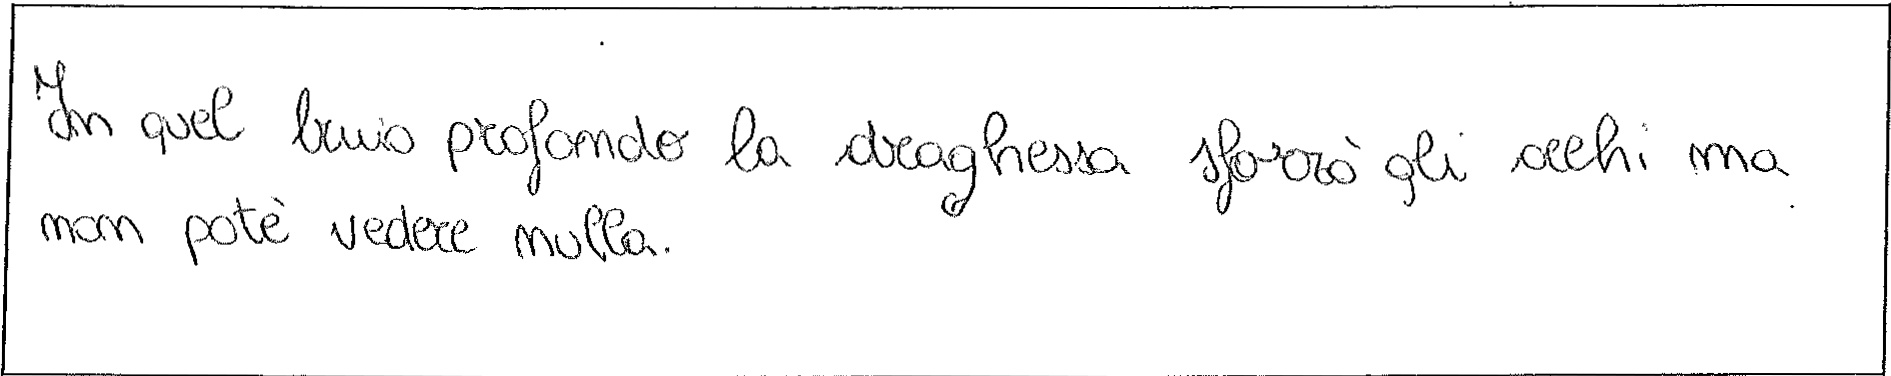 In quel buio profondo la draghessa sforzò gli occhi ma
non potè vedere nulla.